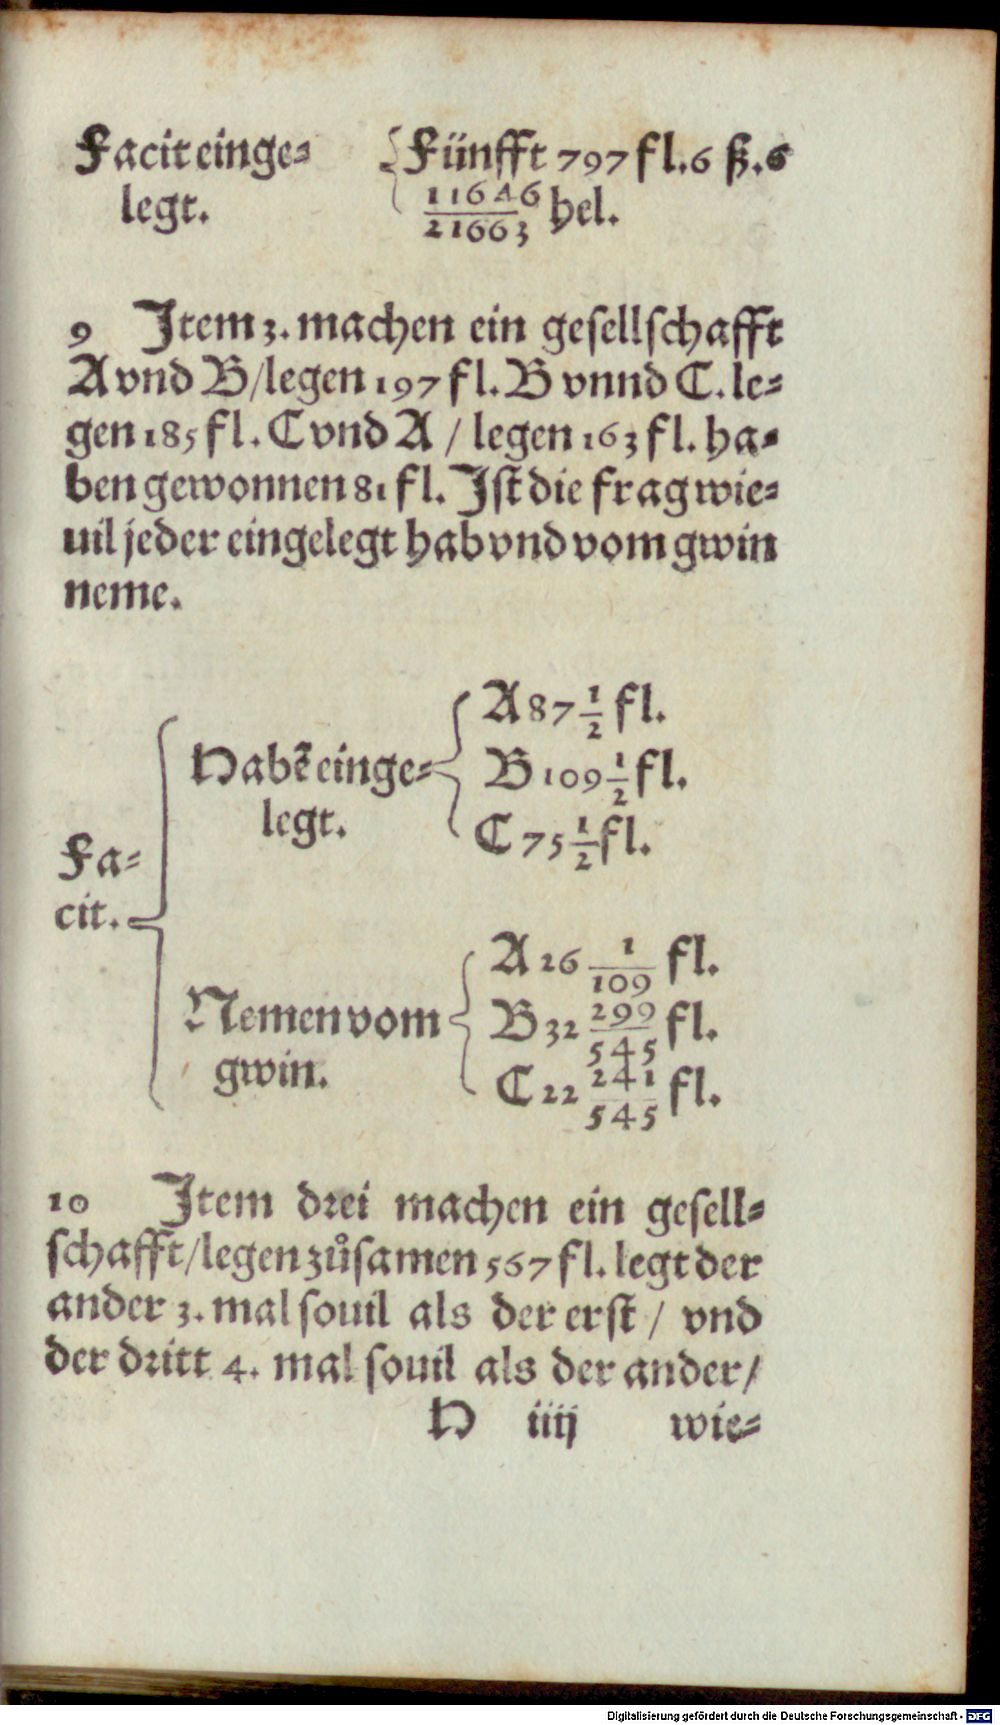 Facit einge= {Fünfft 797 fl. 6 ß. 6
legt. 11646/21663 hel.
9 Item 3. machen ein gesellschafft
A vnd B/legen 197 fl. B vnnd C. le=
gen 185 fl. C vnd A / legen 163 fl. ha=
ben gewonnen 81 fl. Ist die frag wie=
uil jeder eingelegt hab vnd vom gwin
neme.
Fa=
cit.
Habē einge=
legt.
A 87 1/2 fl.
B 109 1/2 fl.
C 75 1/2 fl.
Nemen vom
gwin.
A 26 1/109 fl.
B 32 299/545 fl.
C 22 241/545 fl.
10 Item drei machen ein gesell=
schafft/legen zůsamen 567 fl. legt der
ander 3. mal souil als der erst / vnd
der dritt 4. mal souil als der ander/
H iiij wie=
Digitalisierung gefördert durch die Deutsche Forschungsgemeinschaft - DFG